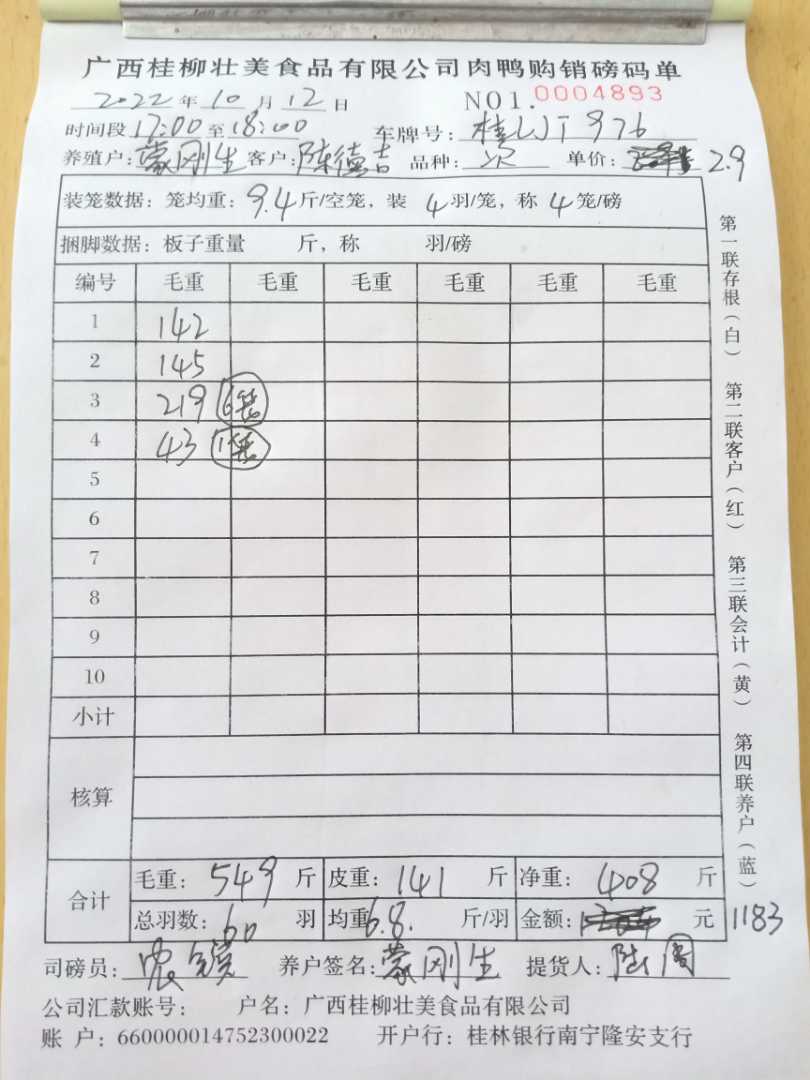 广西桂柳壮美食品有限公司肉鸭购销磅码单
2022年10月12日 NO1.0004893
时间段17:00至18:00 车牌号:桂LJT976
养殖户:蒙刚生 客户:陈德吉 品种:次 单价: 2.9
装笼数据:笼均重:9.4斤/空笼,装 4羽/笼,称4笼/磅
捆脚数据:板子重量 斤,称 羽/磅
编号 毛重 毛重 毛重 毛重 毛重 毛重
1 142
2 145
3 219 6笼
4 43 1笼
5
6
7
8
9
10
小计
核算
合计
毛重:549斤 皮重:141斤 净重:408斤
总羽数:60羽 均重6.8.斤/羽 金额: 元 1183
司磅员: 养户签名:蒙刚生 提货人:
公司汇款账号: 户名:广西桂柳壮美食品有限公司
账 户:660000014752300022 开户行:桂林银行南宁隆安支行
第一联存根(白) 第二联客户(红) 第三联会计(黄) 第四联养户(蓝)